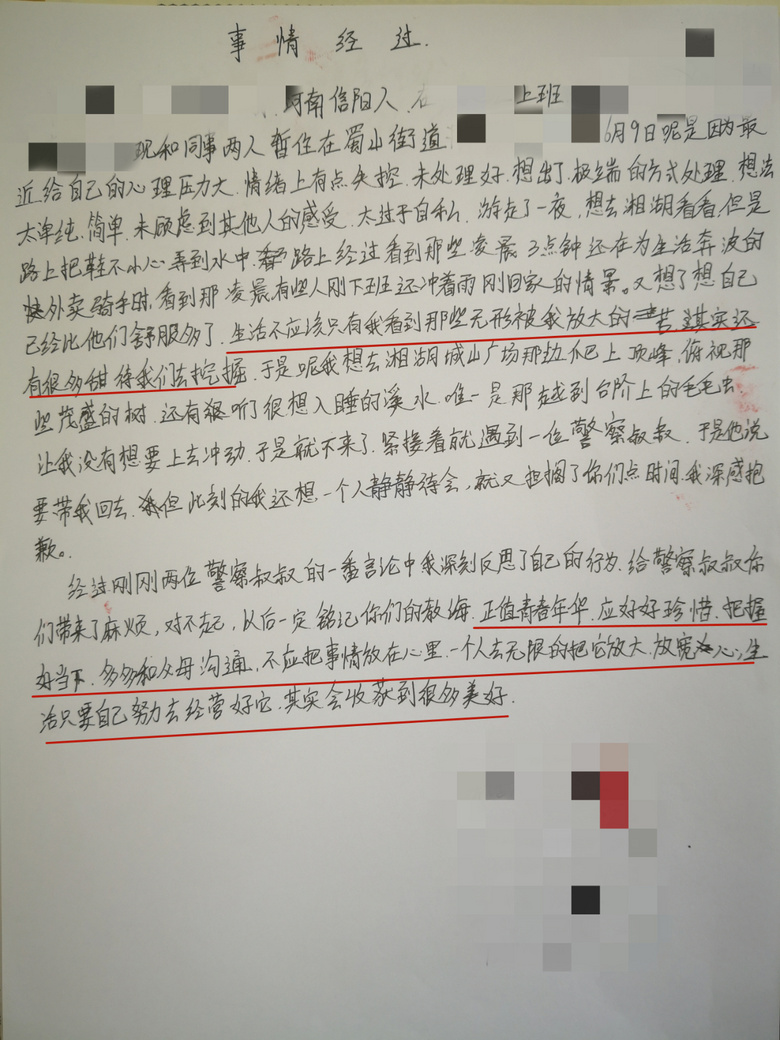 事情经过.
河南信阳人 在 上班
现和同事两人暂住在蜀山街道 6月9日呢是因为最
近给自己的心理压力大.情绪上有点失控.未处理好.想出了极端的方式处理.想法
太单纯.简单.未顾虑到其他人的感受.太过于自私.游走了一夜,想去湘湖看看.但是
路上把鞋不小心弄到水中.路上经过看到那些凌晨3点钟还在为生活奔波的
外卖骑手时,看到那凌晨有些人刚下班还冲着雨刚回家的情景。又想了想自己
已经比他们舒服多了.生活不应该只有我看到那些无形被我放大的苦.其实还
有很多甜待我们去挖掘.于是呢我想去湘湖城山广场那边爬上顶峰,俯视那
些茂盛的树.还有听了很想入睡的溪水.唯一是那越到台阶上的毛毛虫
让我没有想要上去冲动.于是就下来了.紧接着就遇到一位警察叔叔.于是他说
要带我回去.但此刻的我还想一个人静静待会,就又担搁了你们点时间.我深感抱
歉。
经过刚刚两位警察叔叔的一番言论中我深刻反思了自己的行为.给警察叔叔你
们带来了麻烦,对不起,以后一定铭记你们的教诲.正值青春年华.应好好珍惜.把握
好当下.多多和父母沟通,不应把事情放在心里.一个人去无限的把它放大.放宽心;生
活只要自己努力去经营好它.其实会收获到很多美好.